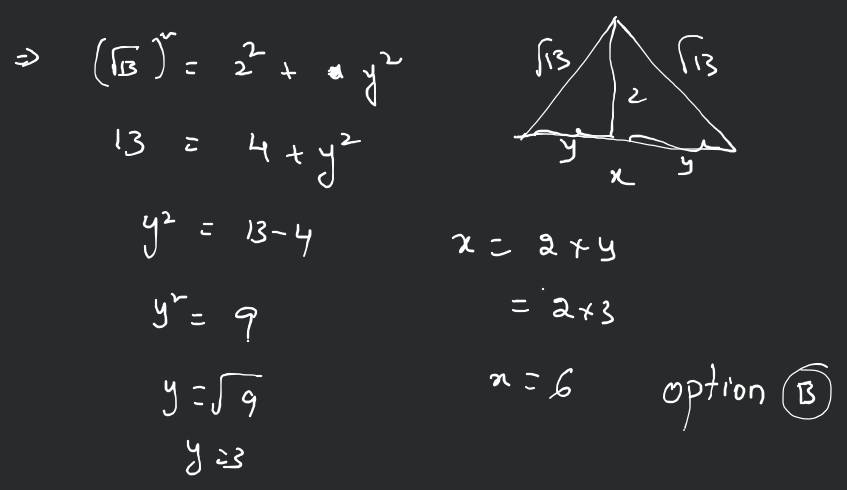 ⇒ (√13)² = 2² + y²
13 = 4 + y²
y² = 13-4
y² = 9
y = √9
y = 3
√13 √13
2
y y
x
x = 2 × y
= 2×3
x = 6
option B